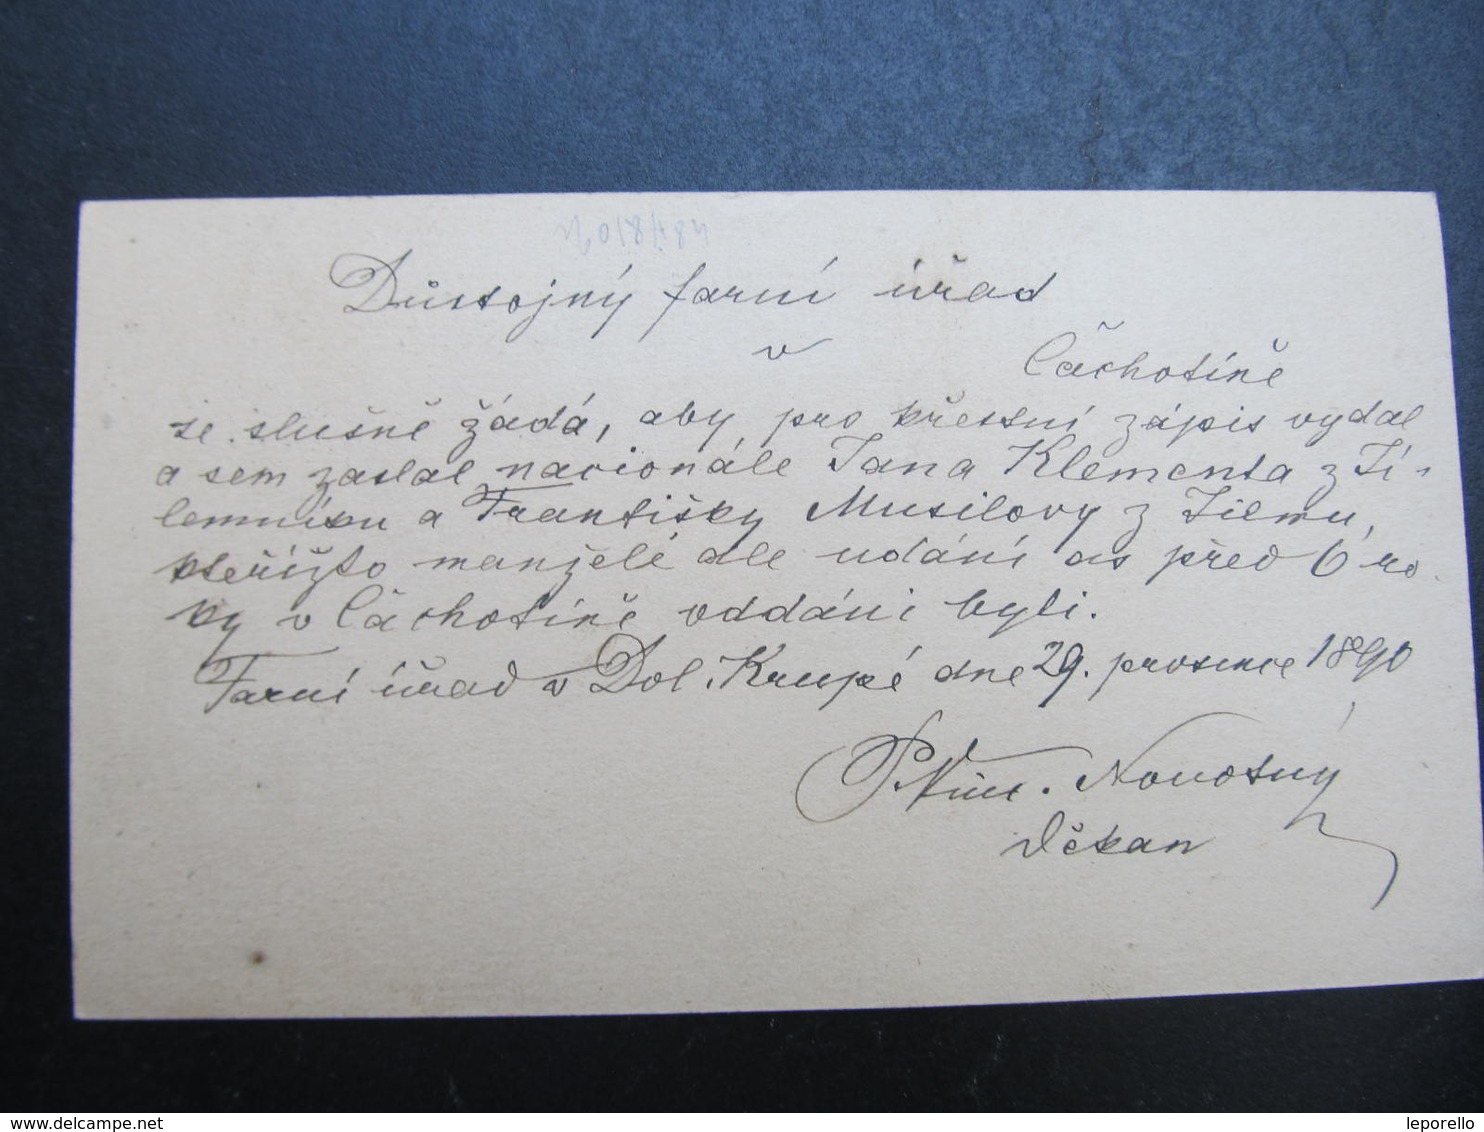 Důstojný farní úřad
v
Čáchotíně
se slušně žádá, aby pro křestní zápis vydal
a sem zaslal nacionále Jana Klementa z Ji-
lemníku a Františky Musilovy z Jilemu,
kteřížto manželé dle udání as před 6 ro-
ky v Čachotíně oddáni byli.
Farní úřad v Dol. Krupé dne 29. prosince 1890
P. Novotný
děkan
© www.delcampe.net
leporello